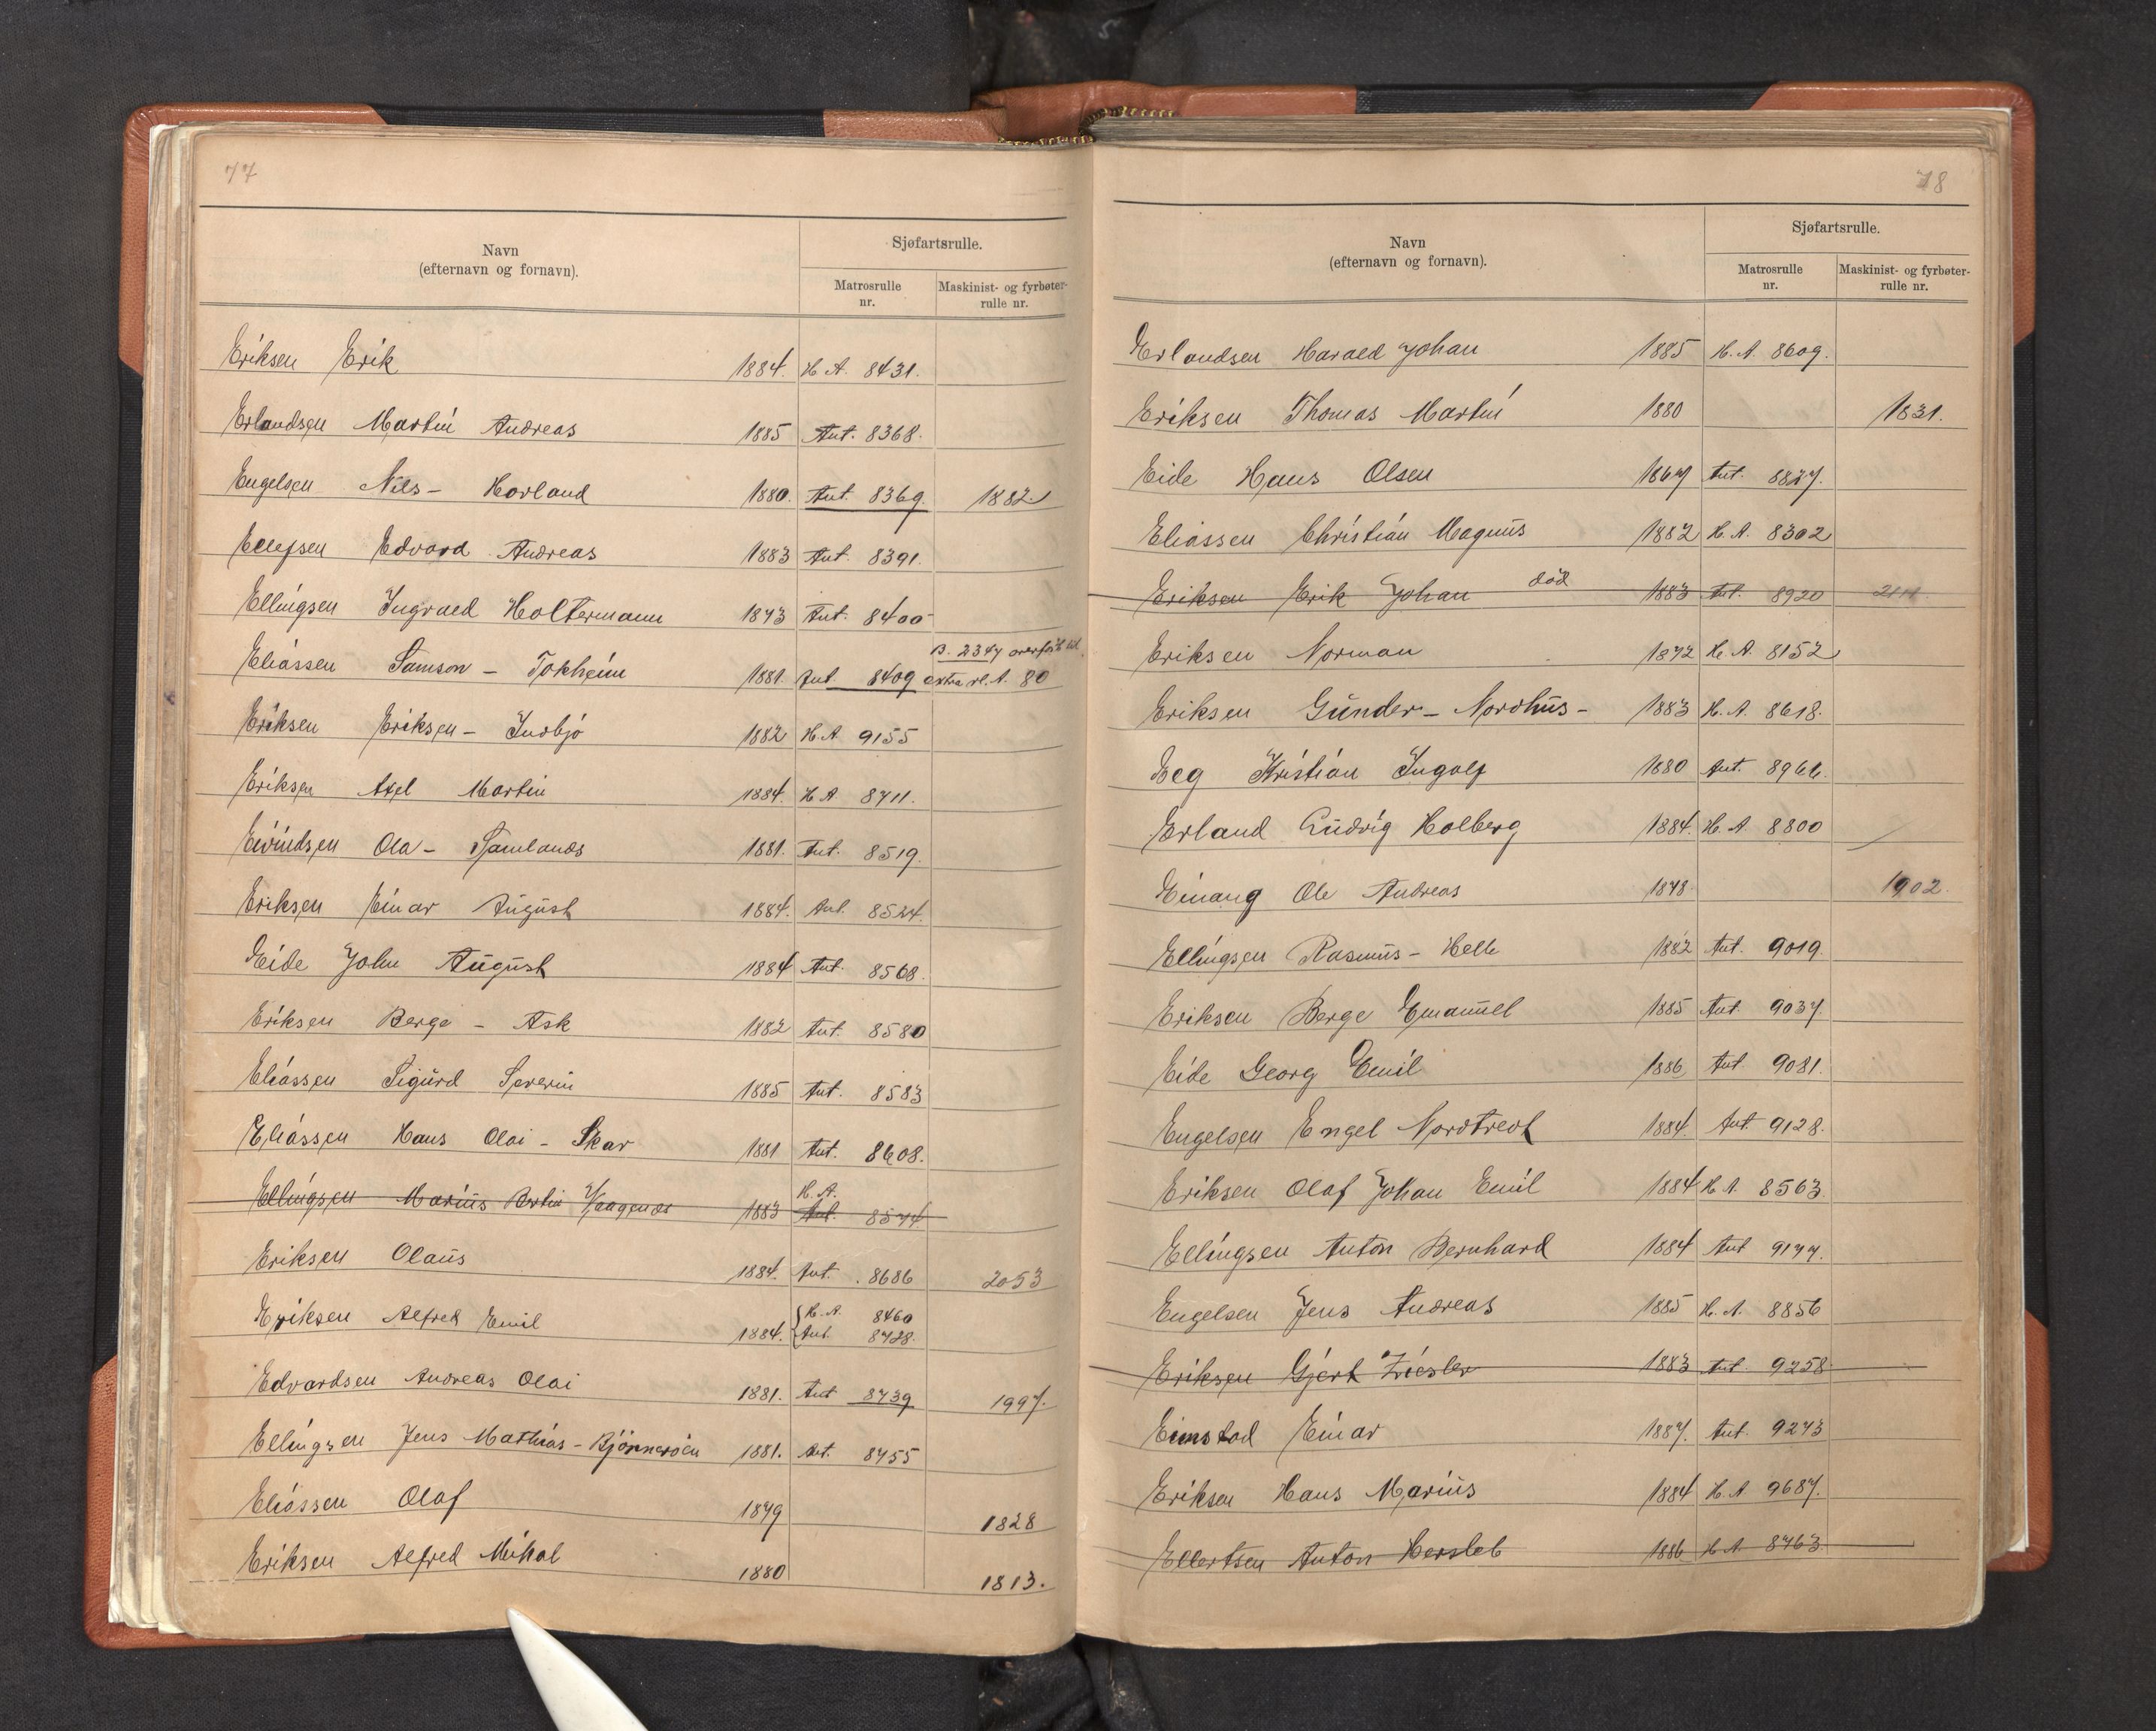 77
Navn
(efternavn og fornavn).
Sjøfartsrulle.
Matrosrulle
nr.
Maskinist- og fyrbøter-
rulle nr.
Eriksen Erik 1884. H. A. 8431.
Erlandsen Martin Andreas 1885 Ant. 8368.
Engelsen Nils - Horland 1880. Ant. 8369. 1882
Ellefsen Edvard Andreas 1883 Ant. 8391.
Ellingsen Ingvald Holtermann 1873 Ant. 8400
B. 2347 overført til
Eliassen Samson - Tokheim 1881. Ant 8409 extra rl. A. 80
Eriksen Eriksen - Indbjo 1882 H. A 9155
Eriksen Axel Martin 1884. H. A 8711.
Eivindsen Ola - Samlands 1881. Ant. 8519.
Eriksen Einar August 1884. Ant. 8524.
Eide John August 1884 Ant. 8568.
Eriksen Berge - Ask 1882 Ant. 8580
Eliassen Sigurd Severin 1885 Ant. 8583
Eliassen Hans Olai - Skar 1881 Ant. 8608.
H. A.
Ellingsen Marius Bertin 1883 Ant. 8574.
Eriksen Olaus 1884. Ant. 8686 2053
Eriksen Alfred Emil 1884. H. A. 8460
Ant. 8728.
Edvardsen Andreas Olai 1881. Ant 8739 1997.
Ellingsen Jens Mathias - Bjønnerøen 1881. Ant. 8755
Eliassen Olaf 1879 1828
Eriksen Alfred Mikal 1880 1813.
78
Navn
(efternavn og fornavn).
Sjøfartsrulle.
Matrosrulle
nr.
Maskinist- og fyrbøter-
rulle nr.
Erlandsen Harald Johan 1885 H. A. 8609.
Eriksen Thomas Martin 1880 1831.
Eide Hans Olsen 1867 Ant. 8827.
Eliassen Christian Magnus 1882 H. A. 8302
Eriksen Erik Johan død 1883 Ant. 8920 2111.
Eriksen Norman 1872 H. A. 8152
Eriksen Gunder - Nordhus - 1883 H. A. 8618.
Eeg Kristian Ingolf 1880 Ant. 8966.
Erland Ludvig Holberg 1884. H. A 8800
Einang Ole Andreas 1878. 1902.
Ellingsen Rasmus - Helle 1882 Ant. 9019.
Eriksen Berge Emanuel 1885 Ant. 9037.
Eide Georg Emil 1886 Ant. 9081.
Engelsen Engel Nordtvedt 1884. Ant. 9128.
Eriksen Olaf Johan Emil 1884 H. A. 8563
Ellingsen Anton Bernhard 1884 Ant 9177.
Engelsen Jens Andreas 1885 H. A. 8856
Eriksen Gjert Ziesler 1883 Ant. 9258
Eimstad Einar 1887. Ant. 9273
Eriksen Hans Marius 1884 H. A 9687.
Ellertsen Anton Hersleb 1886 H. A. 8763.